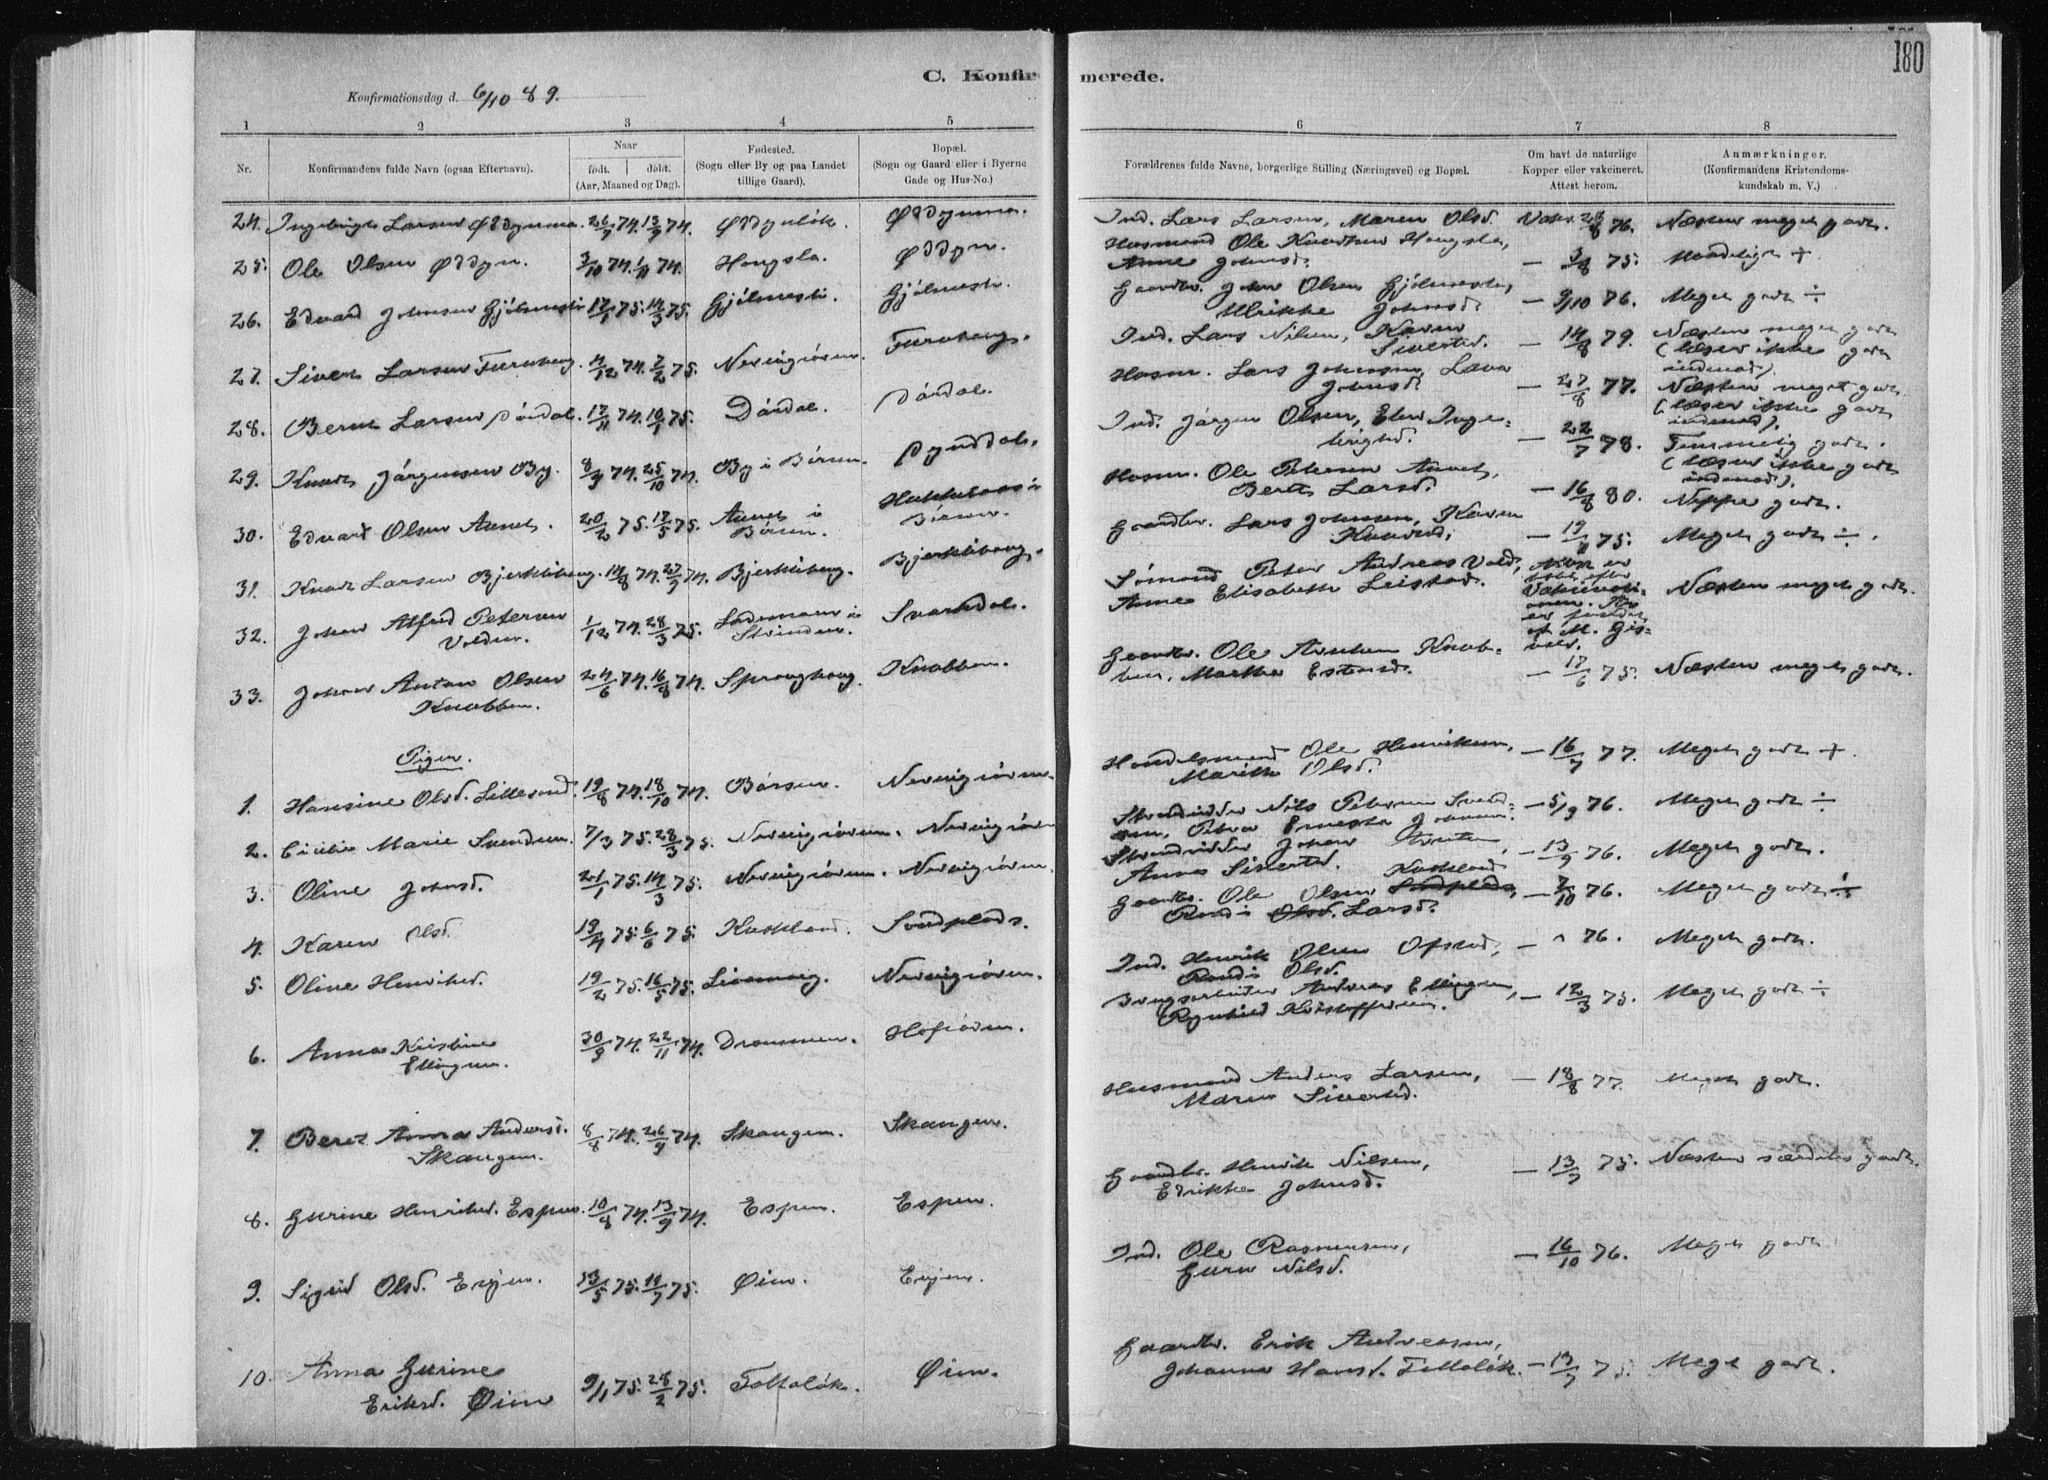 180
C. Konfirmerede.
Konfirmationsdag d. 6/10 89.
1 2 3 4 5 6 7 8
Nr. Konfirmandens fulde Navn (ogsaa Efternavn). Naar født. døbt. (Aar, Maaned og Dag). Fødested. (Sogn eller By og paa Landet tillige Gaard). Bopæl. (Sogn og Gaard eller i Byerne Gade og Hus-No.) Forældrenes fulde Navne, borgerlige Stilling (Næringsvei) og Bopæl. Om havt de naturlige Kopper eller vakcineret. Attest herom. Anmærkninger. (Konfirmandens Kristendomskundskab m. V.)
24. Ingebrigt Larsen 26/7 74. 13/9 74. Ind. Lars Larsen, Maren Olsd. Vakc. 76. Næsten meget godt.
25. Ole Olsen 3/10 74. 1/11 74. Hongslo. Husmand Ole Knudsen Hongslo, Anne Johnsd. — 3/8 75. Maadeligt +
26. Edvard Johnsen Gjölmesli 17/1 75. 14/3 75. Gjölmesli. Gjölmesli. Gaardbr. John Olsen Gjölmesli, Ulrikke Johnsd. — 9/10 76. Meget godt ÷
27. Sivert Larsen 4/12 74. 7/2 75. Ind. Lars Nilsen, Karen Sivertsd. — 14/8 79. Næsten meget godt (læser ikke godt indenad).
28. Bernt Larsen Dördal. 17/11 74. 10/1 75. Dördal. Dördal. Husm. Lars Johnsen, Johnsd. — 27/8 77. Næsten meget godt (læser ikke godt indenad).
29. Knudt Jörgensen By. 8/9 74. 25/10 74. By i Börsen. Ind. Jörgen Olsen, Elen Ingebrigtsd. — 22/7 78. Temmelig godt. (læser ikke godt indenad).
30. Edvard Olsen Aunet. 20/2 75. 17/5 75. Aunet i Börsen. Husm. Ole Petersen Aunet, Beret Larsd. — 16/8 80. Neppe godt.
31. Knudt Larsen Bjerkliberg. 14/8 74. 27/9 74. Bjerkliberg. Bjerkliberg. Gaardbr. Lars Johnsen, Karen Knudsd. — 75. Meget godt ÷.
32. Johan Alfred Petersen Volden. 1/12 74. 28/3 75. Lademoen i Strinden. Svardal. Sömand Peter Andreas Vold, Anne Elisabeth Leistad. Næsten meget godt.
33. Johan Anton Olsen Knobben. 24/6 74. 16/8 74. Spronghaug. Knobben. Gaardbr. Ole Arntsen Knobben, Marthe Estensd. — 17/6 75. Næsten meget godt.
Piger.
1. Hansine Olsd. 19/8 74. 18/10 74. Börsen. Nervigören. Handelsmand Ole Henriksen, Marith Olsd. — 16/7 77. Meget godt +.
2. Cicilie Marie Svendsen. 7/3 75. 28/3 75. Nervigören. Nervigören. Strandsidder Nils Petersen Svendsen, Petra Ernesta Johnsen. — 5/9 76. Meget godt ÷
3. Oline Johnsd. 21/1 75. 14/3 75. Nervigören. Nervigören. Strandsidder Johan Arntsen, Anne Sivertsd. — 13/9 76. Meget godt.
4. Karen Olsd. 19/4 75. 6/6 75. Kuskland. Sveplads. Gaardbr. Ole Olsen Kuskland, Randi Larsd. — 7/10 76. Meget godt ÷
5. Oline Henriksd. 19/2 75. 16/5 75. Nervigören. Ind. Henrik Olsen Ofstad, Randi Olsd. — 76. Meget godt.
6. Anna Kristine Ellingsen. 30/9 74. 22/11 74. Drammen. Hofsören. Brugsarbeider Andreas Ellingsen, Ragnhild Kristoffersen. — 12/3 75. Meget godt ÷
7. Beret Anna Andersd. Skaugen. 8/8 74. 26/9 74. Skaugen. Skaugen. Husmand Anders Larsen, Maren Sivertsd. — 18/8 77. Meget godt.
8. Gurine Henriksd. Espen. 10/8 74. 13/9 74. Espen. Espen. Gaardbr. Henrik Nilsen, Edrikke Johnsd. — 75. Næsten særdeles godt.
9. Sigrid Olsd. Evjen. 13/5 75. 11/7 75. Øien. Evjen. Ind. Ole Rasmussen, Guru Nilsd. — 16/10 76. Meget godt.
10. Anna Gurine Eriksd. Øien 9/1 75. 28/2 75. Øien. Gaardbr. Erik Andreasen, Johanna Hansd. — 13/7 75. Meget godt.